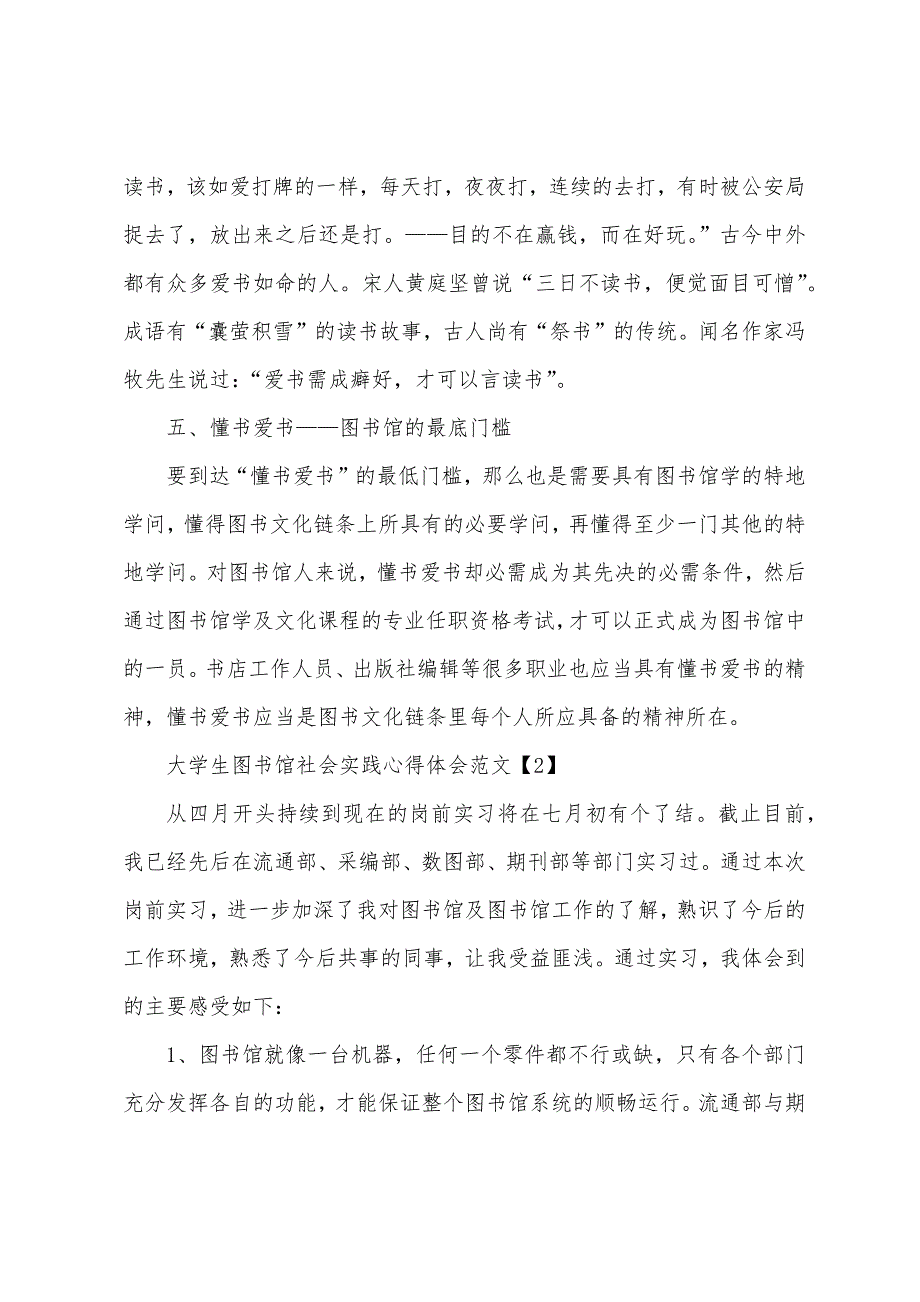 读书，该如爱打牌的一样，每天打，夜夜打，连续的去打，有时被公安局
捉去了，放出来之后还是打。——目的不在赢钱，而在好玩。”古今中外
都有众多爱书如命的人。宋人黄庭坚曾说“三日不读书，便觉面目可憎”。
成语有“囊萤积雪”的读书故事，古人尚有“祭书”的传统。闻名作家冯
牧先生说过：“爱书需成癖好，才可以言读书”。
五、懂书爱书——图书馆的最底门槛
要到达“懂书爱书”的最低门槛，那么也是需要具有图书馆学的特地
学问，懂得图书文化链条上所具有的必要学问，再懂得至少一门其他的特
地学问。对图书馆人来说，懂书爱书却必需成为其先决的必需条件，然后
通过图书馆学及文化课程的专业任职资格考试，才可以正式成为图书馆中
的一员。书店工作人员、出版社编辑等很多职业也应当具有懂书爱书的精
神，懂书爱书应当是图书文化链条里每个人所应具备的精神所在。
大学生图书馆社会实践心得体会范文【2】
从四月开头持续到现在的岗前实习将在七月初有个了结。截止目前，
我已经先后在流通部、采编部、数图部、期刊部等部门实习过。通过本次
岗前实习，进一步加深了我对图书馆及图书馆工作的了解，熟识了今后的
工作环境，熟悉了今后共事的同事，让我受益匪浅。通过实习，我体会到
的主要感受如下：
1、图书馆就像一台机器，任何一个零件都不行或缺，只有各个部门
充分发挥各自的功能，才能保证整个图书馆系统的顺畅运行。流通部与期